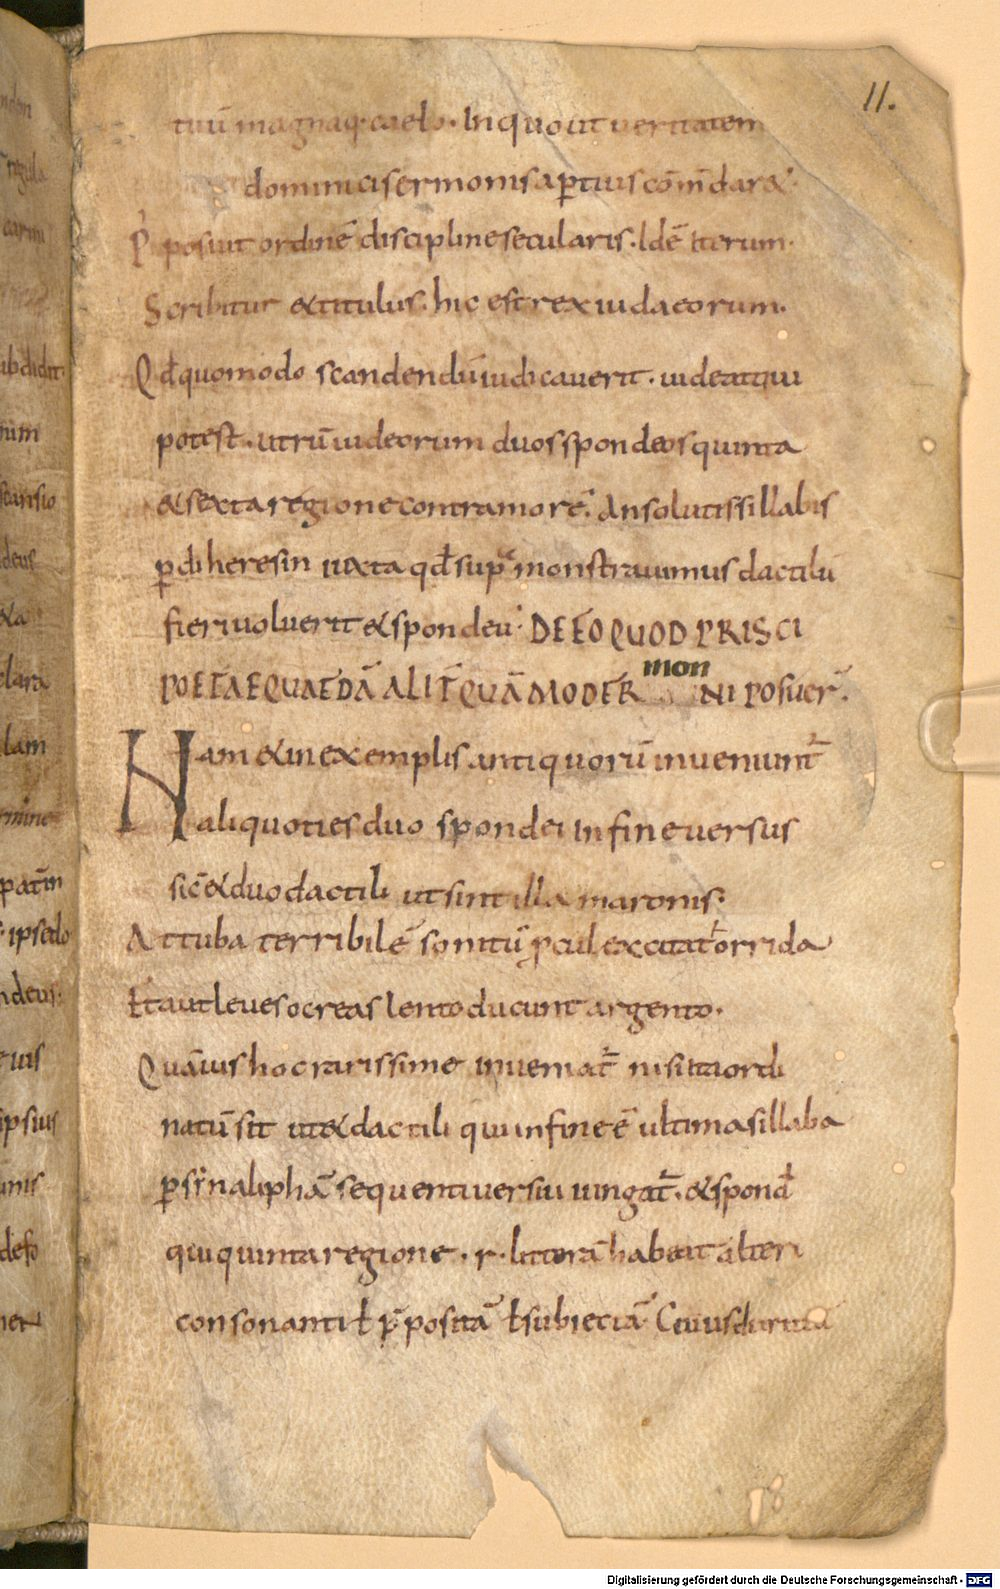 11.
tuū magnaq· caelo· In quo ut ueritatem
dominici sermonis aptius cōm̄dar&·
P̄posuit ordinē discipline secularis· Idē iterum·
Scribitur & titulus· hic est rex iudaeorum·
Qđ quomodo scandendū iudicauerit· uideat qui
potest· utrū iudeorum duos spondeos quinta
& sexta regione contra morē· An solutis sillabis
ꝑ diheresin iuxta qđ supͣ monstrauimus dactilū
fieri uoluerit & spondeū· DE EO QUOD PRISCI
mon
POETAE QUAEDĀ ALIT̄ QUĀ MODER NI POSUER̄·
Nam & in exemplis antiquorū inueniunt̄
aliquoties duo spondei in fine uersus
sic̄ & duo dactili ut sint illa maronis·
At tuba terribilē sonitū ꝓcul excitat orrida
ł aut leues ocreas lento ducunt argento·
Quāuis hoc rarissime inueniat̄ nisi ita ordi
natū sit ut & dactili qui in fine ē ultima sillaba
ꝑ sinaliphā sequenti uersui iungat̄· & spond
qui quinta regione· r· litterā habeat alteri
consonanti ł p̄positā ł subiectā· Cuius duritiā
Digitalisierung gefördert durch die Deutsche Forschungsgemeinschaft - DFG